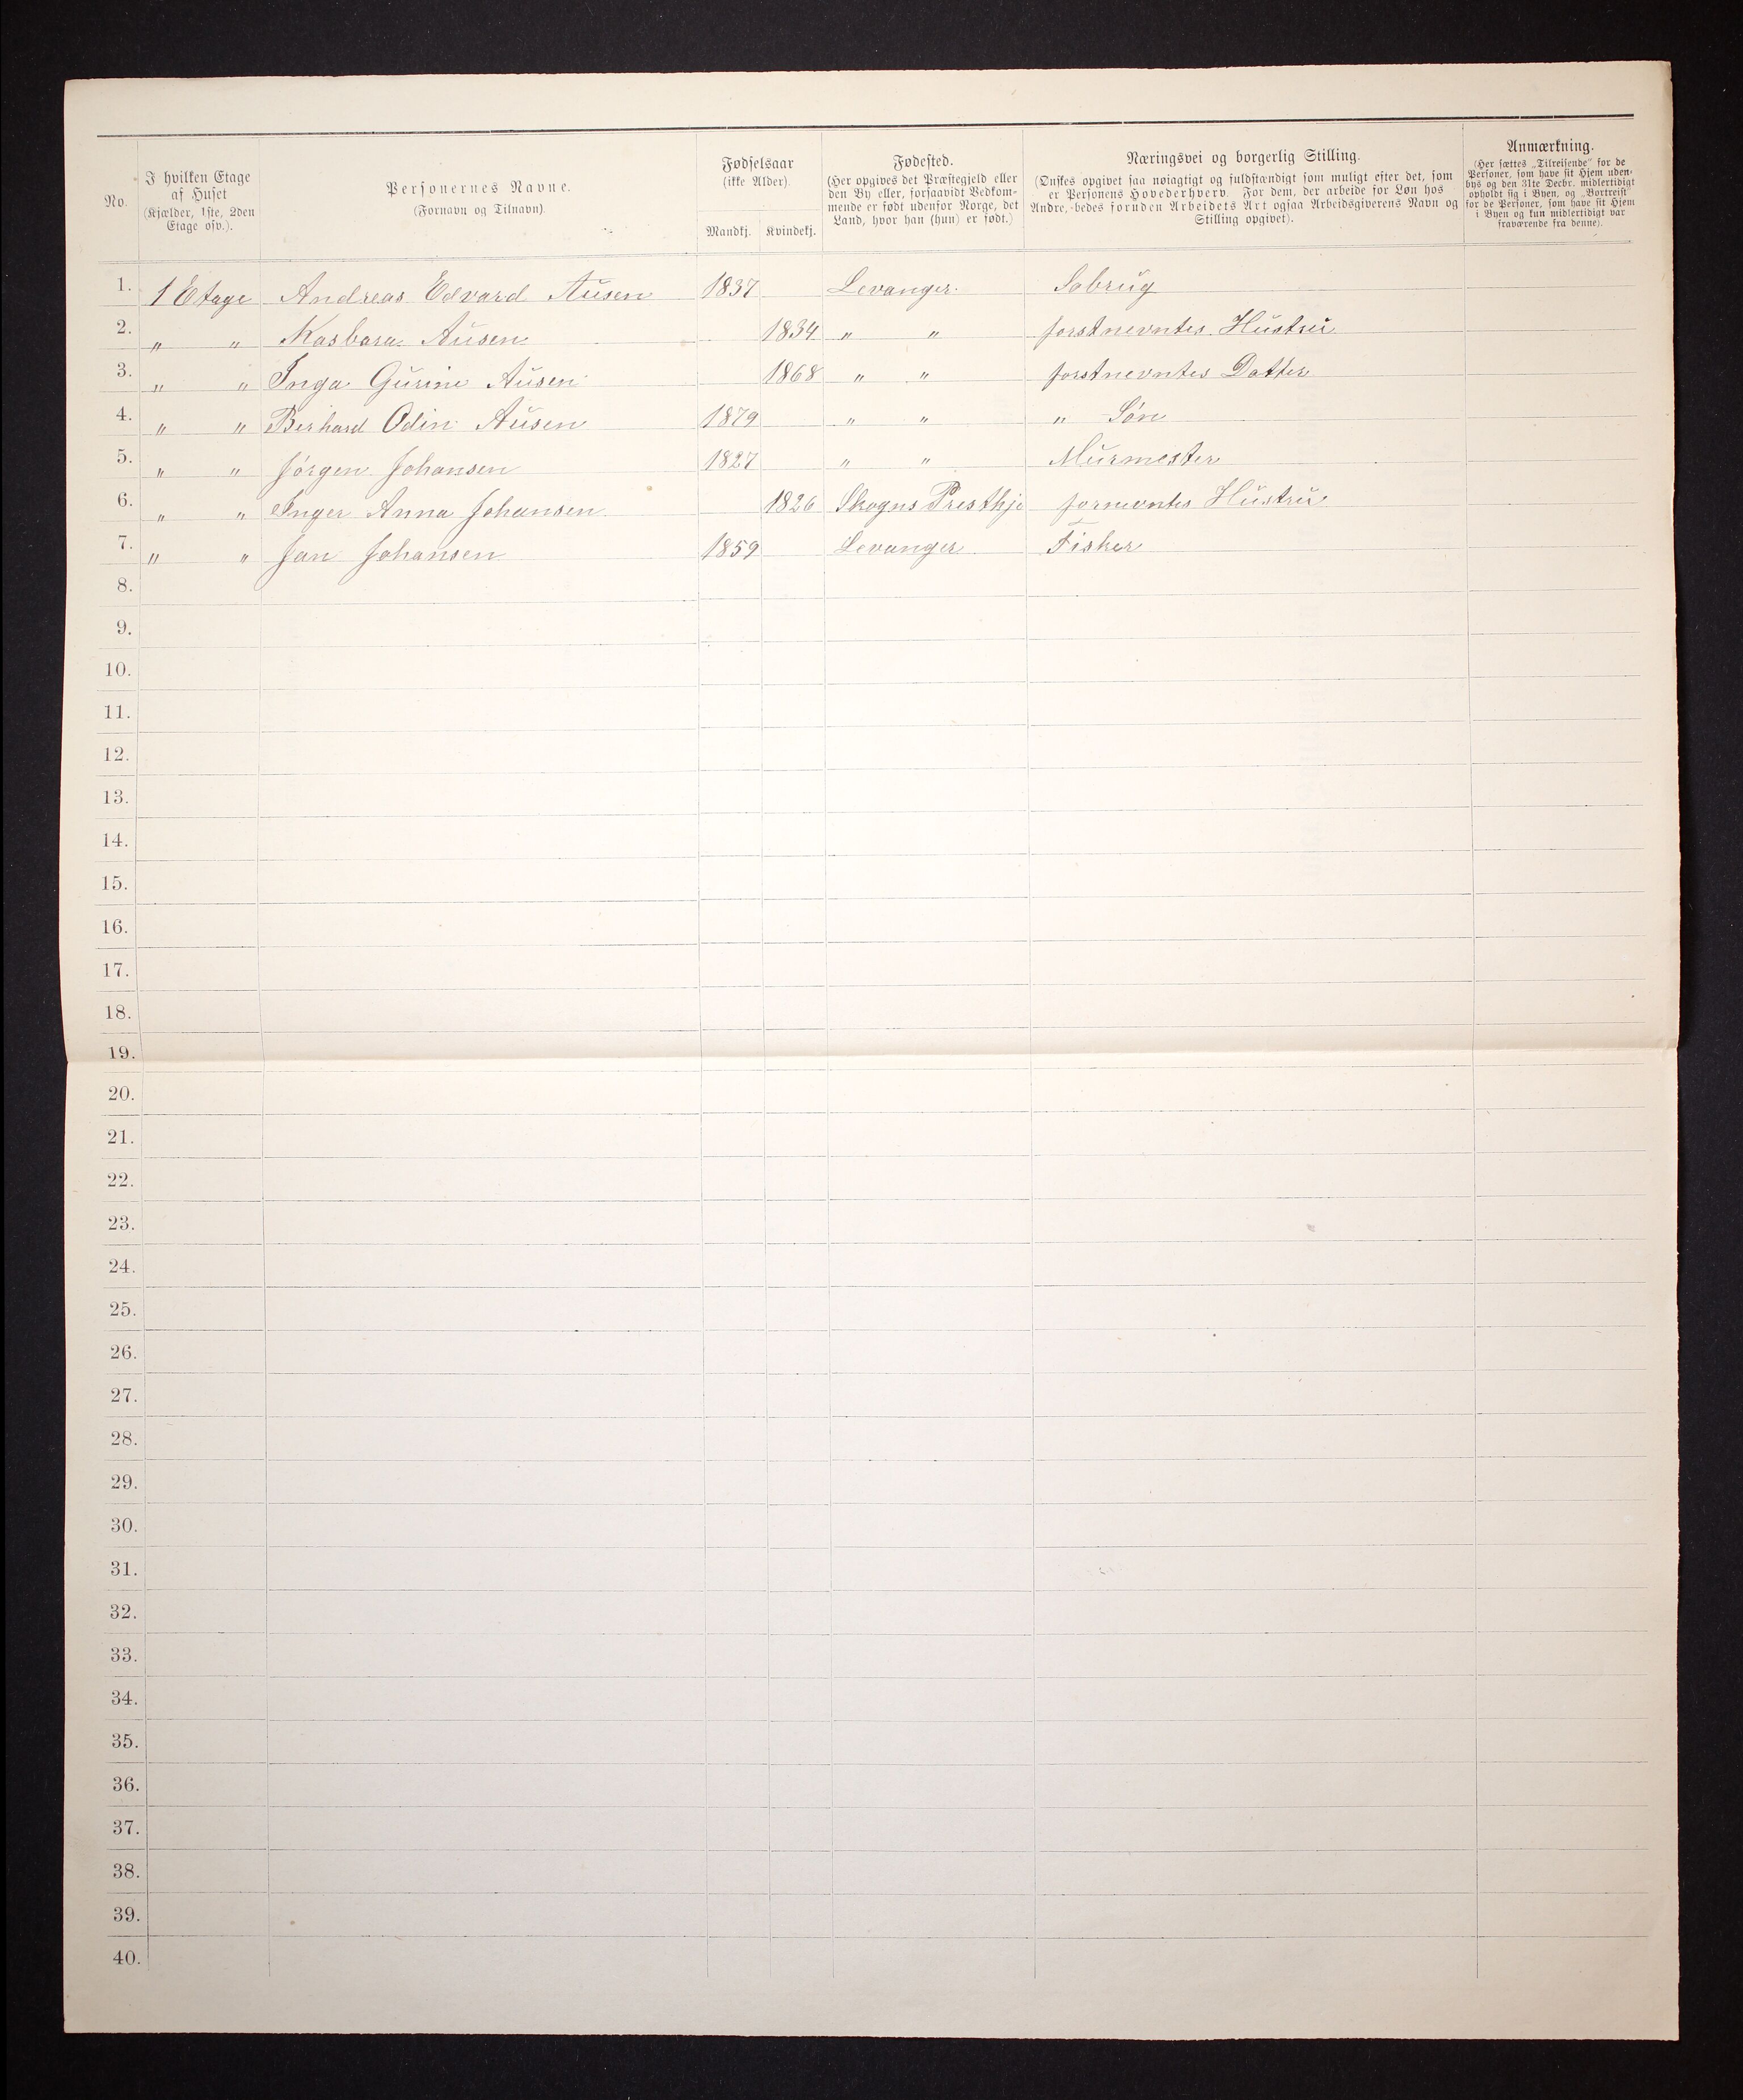 No.
I hvilken Etage
af Huset
(Kjælder, 1ste, 2den
Etage osv.).
Personernes Navne.
(Fornavn og Tilnavn).
Fødselsaar
(ikke Alder).
Mandkj. Kvindekj.
Fødested.
(Her opgives det Præstegjeld eller
den By eller, forsaavidt Vedkom-
mende er født udenfor Norge, det
Land, hvor han (hun) er født.)
Næringsvei og borgerlig Stilling.
(Ønskes opgivet saa nøiagtigt og fuldstændigt som muligt efter det, som
er Personens Hovederhverv. For dem, der arbeide for Løn hos
Andre, bedes foruden Arbeidets Art ogsaa Arbeidsgiverens Navn og
Stilling opgivet).
Anmærkning.
(Her sættes „Tilreisende" for de
Personer, som have sit Hjem uden-
bys og den 31te Decbr. midlertidigt
opholdt sig i Byen, og „Bortreist"
for de Personer, som have sit Hjem
i Byen og kun midlertidigt var
fraværende fra denne).
1. 1 Etage Andreas Edvard Ausen 1837 Levanger. Sobrug
2. " " Kasbara Ausen 1834 " " forstnevntes Hustru
3. " " Inga Gurine Ausen 1868 " " forstnevntes Datter
4. " " Berhard Odin Ausen 1879 " " " Søn
5. " " Jørgen Johansen 1827 " " Murmester
6. " " Inger Anna Johansen 1826 Skogns Presthje fornevntes Hustru
7. " " Jan Johansen 1859 Levanger Fisker
8.
9.
10.
11.
12.
13.
14.
15.
16.
17.
18.
19.
20.
21.
22.
23.
24.
25.
26.
27.
28.
29.
30.
31.
32.
33.
34.
35.
36.
37.
38.
39.
40.